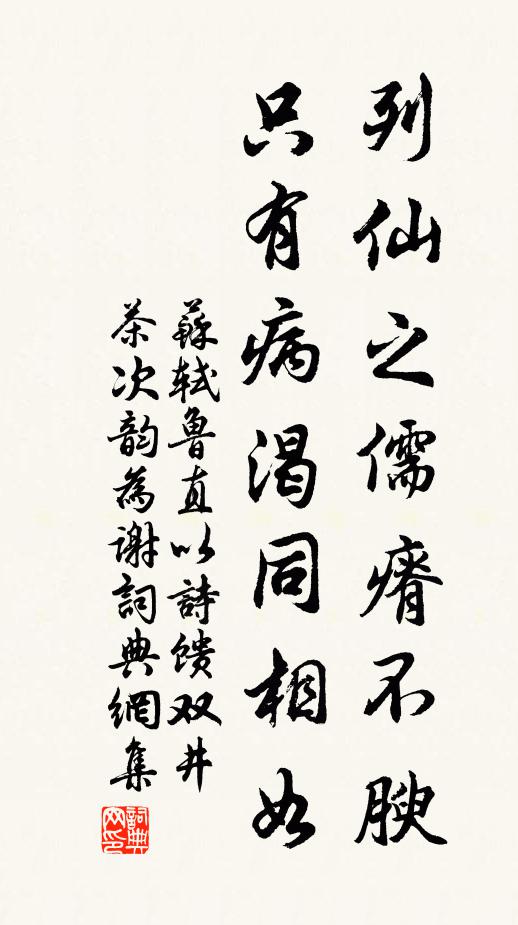 列仙之儒瘠不腴
只有病渴同相如
蘇轼魯直以詩馈双井
茶次韵為谢詞典網集
詞典网印